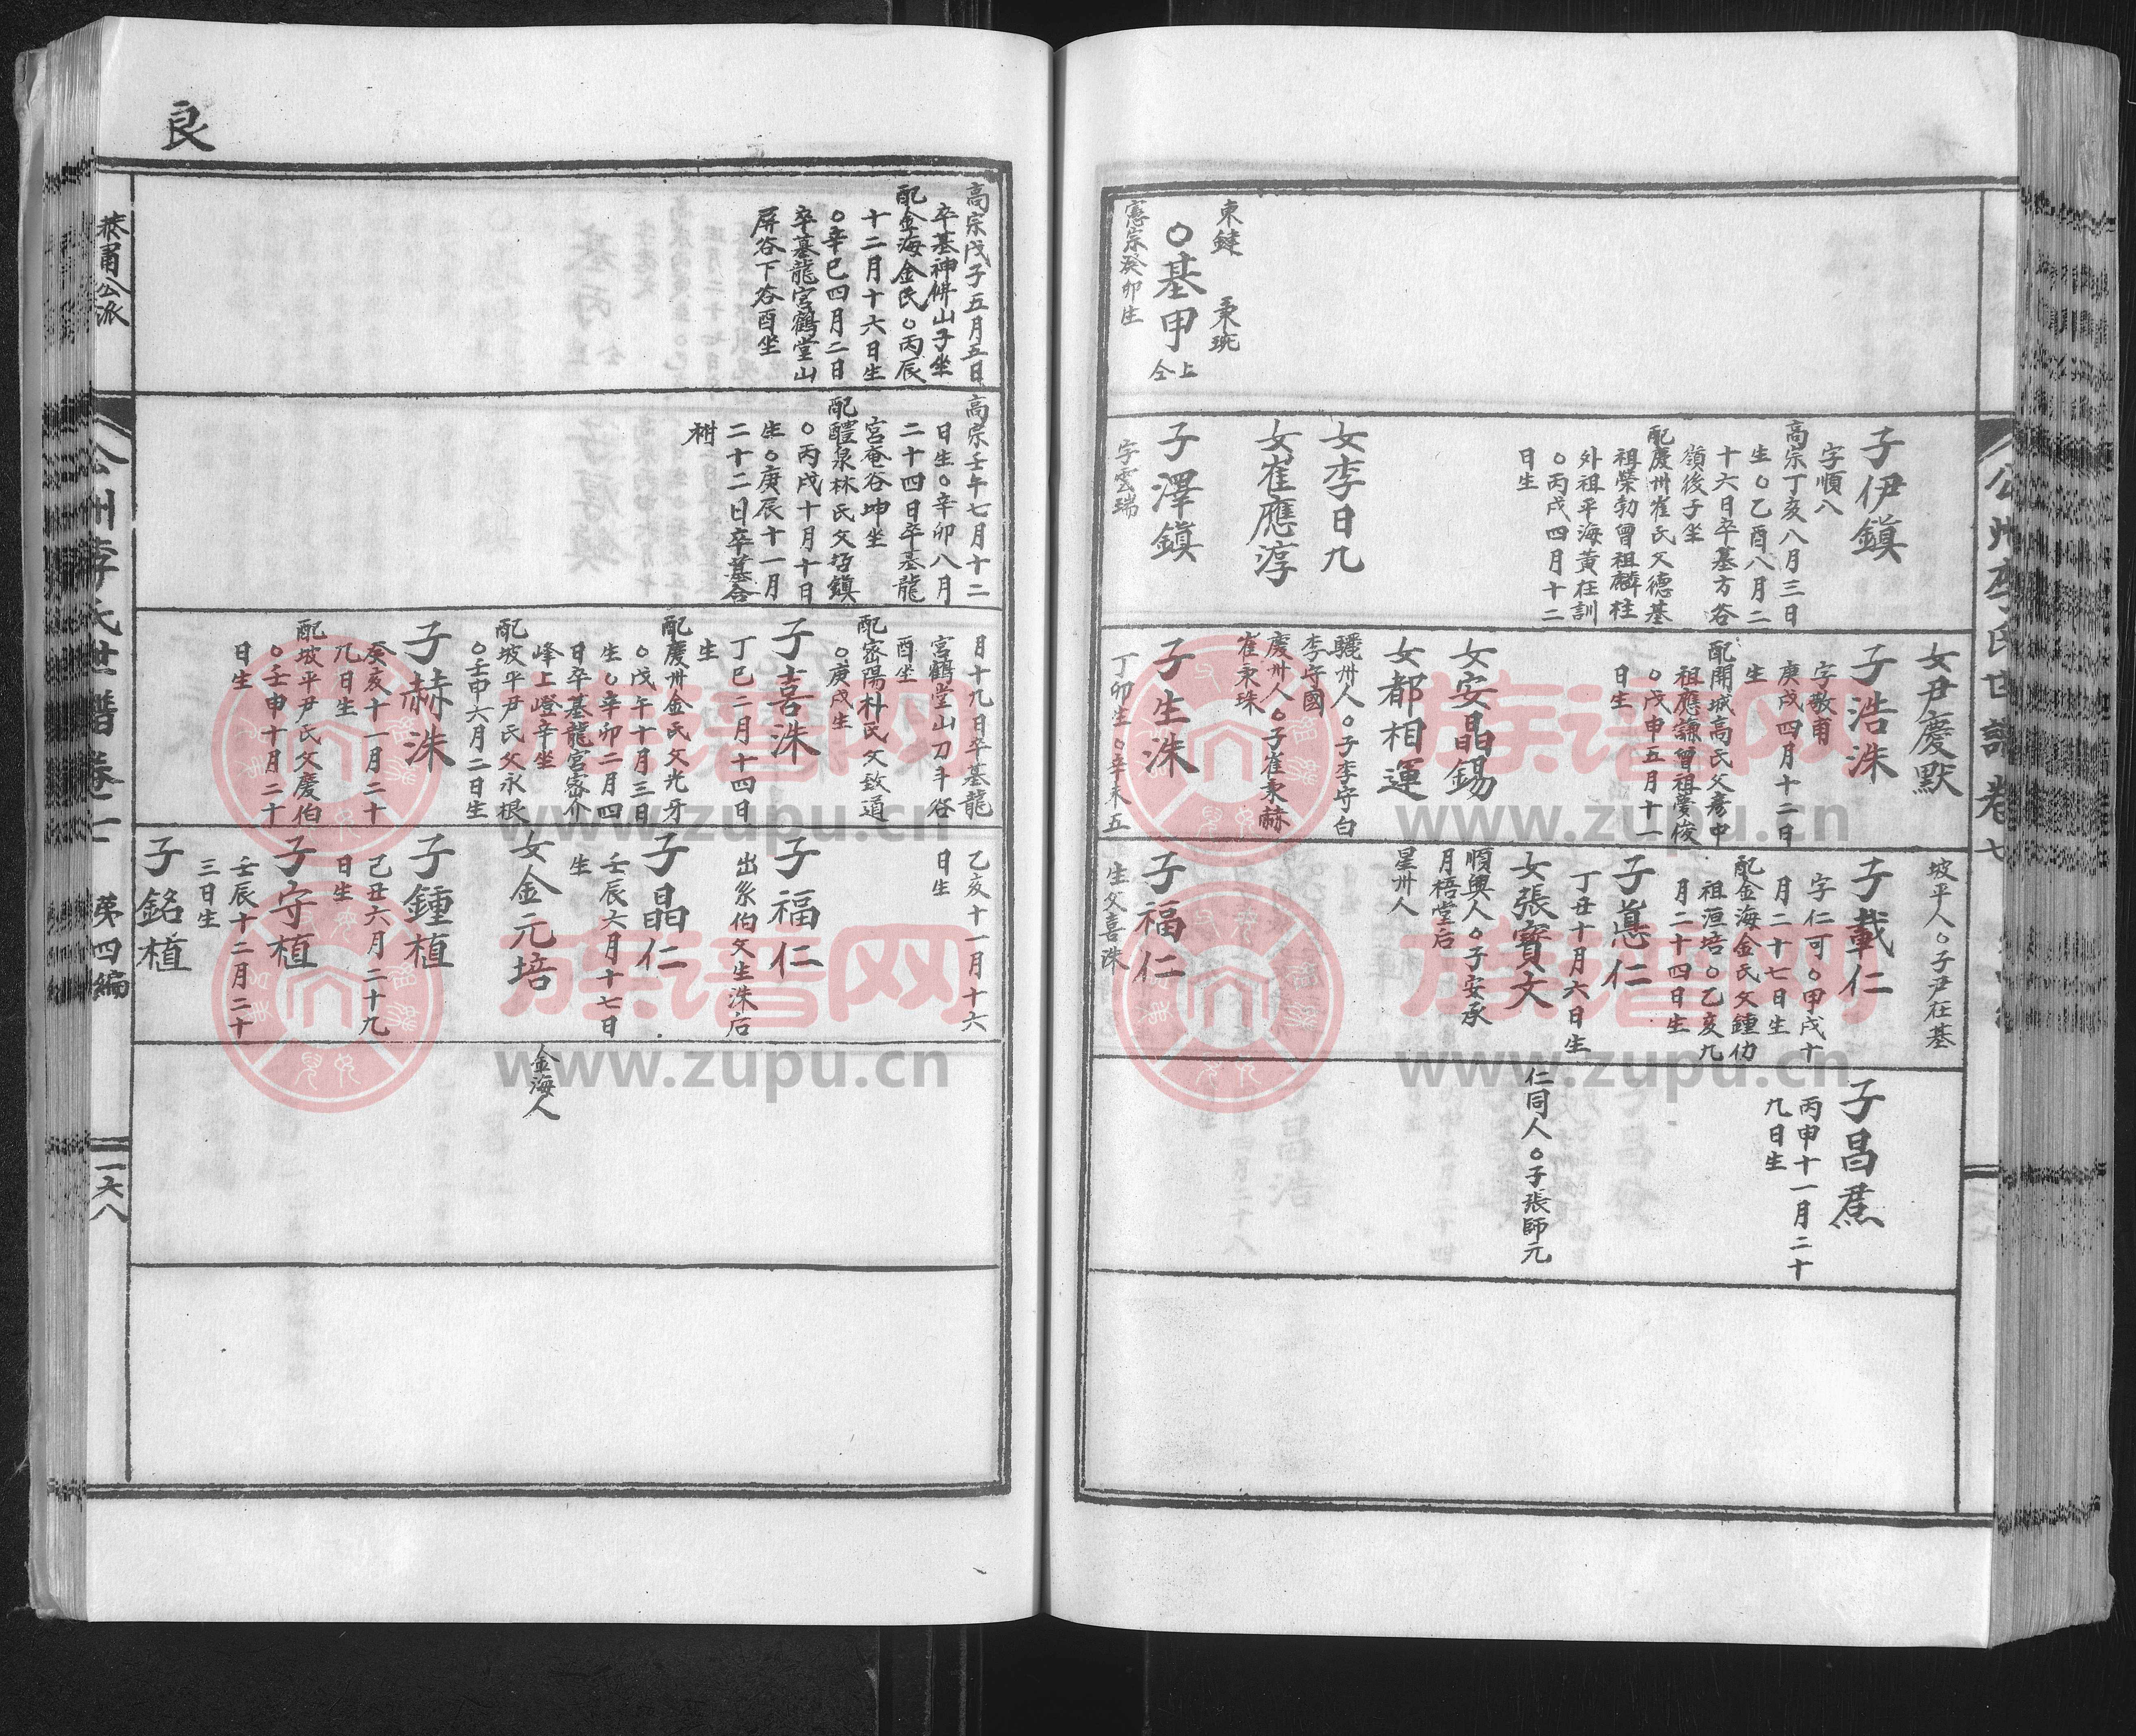 公州李氏世譜卷七
東鍵
秉珷
○基甲
仝上
憲宗癸卯生
子伊鎭
字順八
高宗丁亥八月三日
生○乙酉八月二
十六日卒墓方谷
嶺後子坐
配慶州崔氏父德基
祖榮勃曾祖麟柱
外祖平海黃在訓
○丙戌四月十二
日生
女李日九
女崔應淳
子澤鎭
字雲瑞
女尹慶默
子浩洙
字敬甫
庚戌四月十二日
生
配開城高氏父彥中
祖應謙曾祖夢俊
○戊申五月十一
日生
女安晶錫
女都相運
驪州人○子李守白
李守國
慶州人○子崔秉赫
崔秉珠
子生洙
丁卯生○辛未五
坡平人○子尹在基
子載仁
字仁可○甲戌十
月二十七日生
配金海金氏父鍾仂
祖洹培○乙亥九
月二十四日生
子惪仁
丁丑十月六日生
女張寶文
順興人○子安承
月梧堂后
星州人
子福仁
生父喜洙
子昌熹
丙申十一月二十
九日生
仁同人○子張師元
良
高宗戊子五月五日
卒墓神倂山子坐
配金海金氏○丙辰
十二月十六日生
○辛巳四月二日
卒墓龍宮鶴堂山
屏谷下谷酉坐
高宗壬午七月十二
日生○辛卯八月
二十四日卒墓龍
宮菴谷坤坐
配醴泉林氏父珆鎭
○丙戌十月十日
生○庚辰十一月
二十二日卒墓合
祔
月十九日卒墓龍
宮鶴堂山刀斗谷
酉坐
配密陽朴氏父致道
○庚戌生
子喜洙
丁巳二月十四日
生
配慶州金氏父光牙
○戊午十月三日
生○辛卯二月四
日卒墓龍宮密介
峰上嶝辛坐
配坡平尹氏父永根
○壬申六月二日生
子赫洙
癸亥十一月二十
九日生
配坡平尹氏父慶伯
○壬申十月二十
日生
乙亥十一月十六
日生
子福仁
出系伯父生洙后
子晶仁
壬辰六月十七日
生
女金元培
子鍾植
己丑六月二十九
日生
子守植
壬辰十二月二十
三日生
子銘植
金海人
恭肅公派
公州李氏世譜卷七
第四編
一六八
族谱网
www.zupu.cn
族谱网
www.zupu.cn
族谱网
www.zupu.cn
族谱网
www.zupu.cn